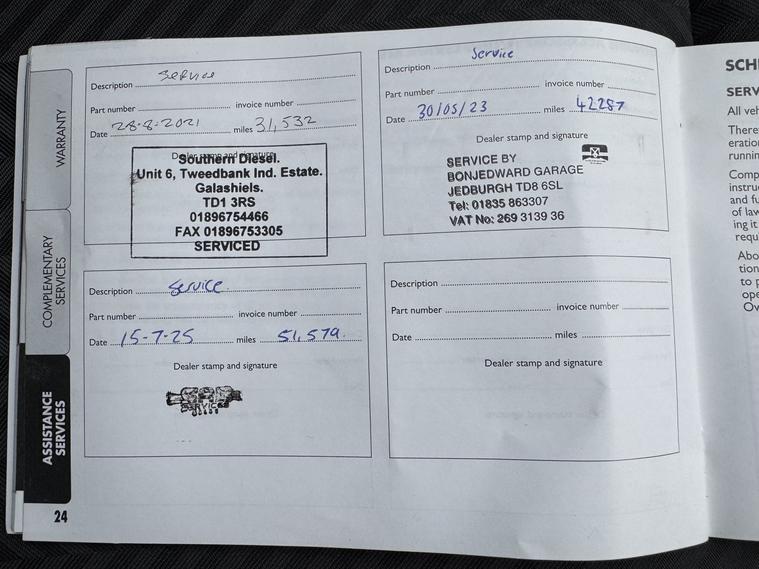 WARRANTY
COMPLEMENTARY
SERVICES
ASSISTANCE
SERVICES
Description Service
Part number invoice number
Date 28-8-2021 miles 31,532
Dealer stamp and signature
Southern Diesel.
Unit 6, Tweedbank Ind. Estate.
Galashiels.
TD1 3RS
01896754466
FAX 01896753305
SERVICED
Description Service
Part number invoice number
Date 30/05/23 miles 42287
Dealer stamp and signature
SERVICE BY
BONJEDWARD GARAGE
JEDBURGH TD8 6SL
Tel: 01835 863307
VAT No: 269 3139 36
Description Service
Part number invoice number
Date 15-7-25 miles 51,579
Dealer stamp and signature
SERVICE
Description
Part number invoice number
Date miles
Dealer stamp and signature
24
SCH
SERV
All veh
There
eration
runnin
Comp
instruc
and fu
of law
ing it
requ
Abo
tion
to p
ope
Ov